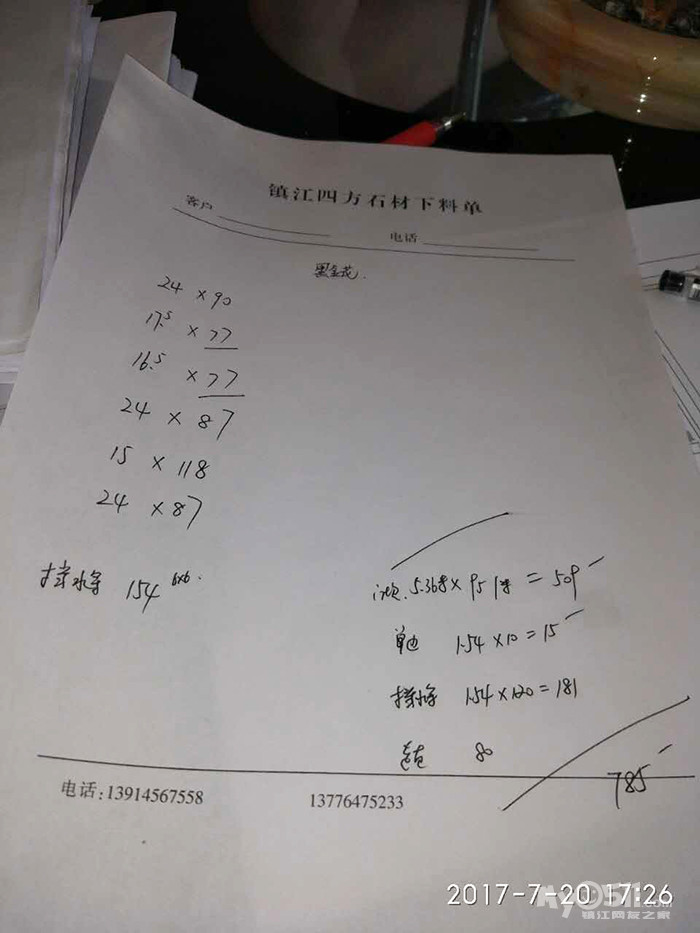 镇江四方石材下料单
客户 电话
黑金花.
24 × 90
17.5 × 77
16.5 × 77
24 × 87
15 × 118
24 × 87
挡水条 154 6x6.
5.368 × 95 = 509
单边 1.54 × 10 = 15
挡水条 1.54 × 120 = 181
80
785
电话:13914567558 13776475233
2017-7-20 17:26
My0511.com
镇江网友之家